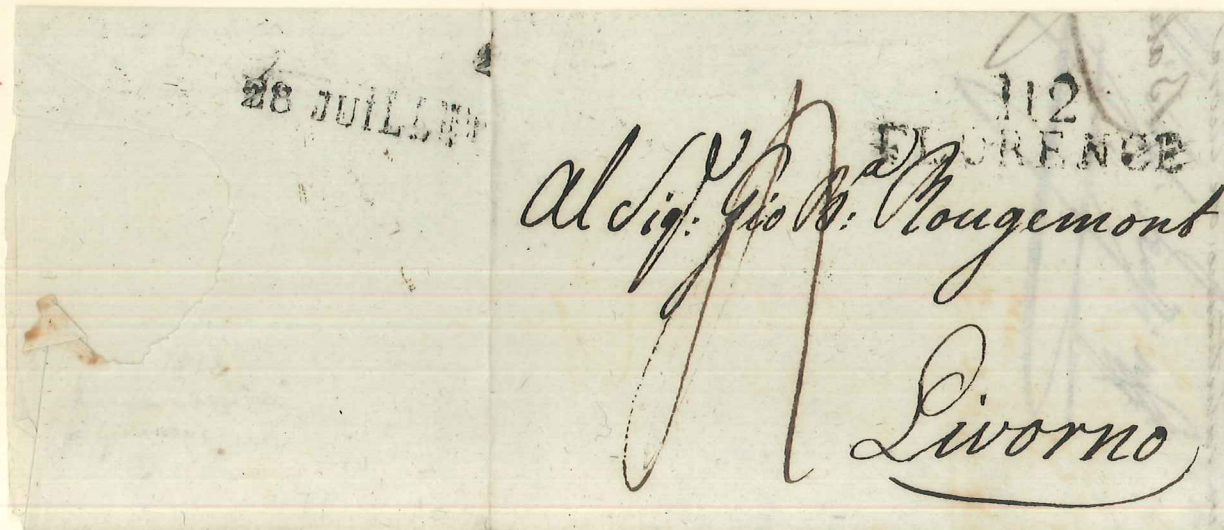 28 JUILLET
112
FLORENCE
Al Sigr: Gio Ba: Rougemont
Livorno